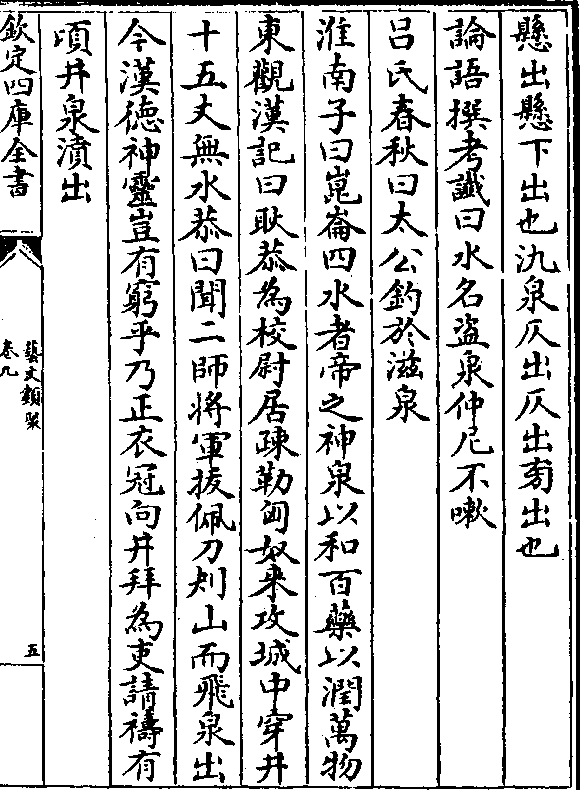 懸出懸下出也氿泉仄出仄出㫄出也
論語撰考讖曰水名盜泉仲尼不嗽
吕氏春秋曰太公釣於滋泉
淮南子曰崑崙四水者帝之神泉以和百藥以潤萬物
東觀漢記曰耿恭為校尉居疎勒匈奴来攻城中穿井
十五丈無水恭曰聞二師將軍拔佩刀刺山而飛泉出
今漢徳神靈豈有窮乎乃正衣冠向井拜為吏請禱有
頃井泉濆出
欽定四庫全書
藝文類聚
卷九
五